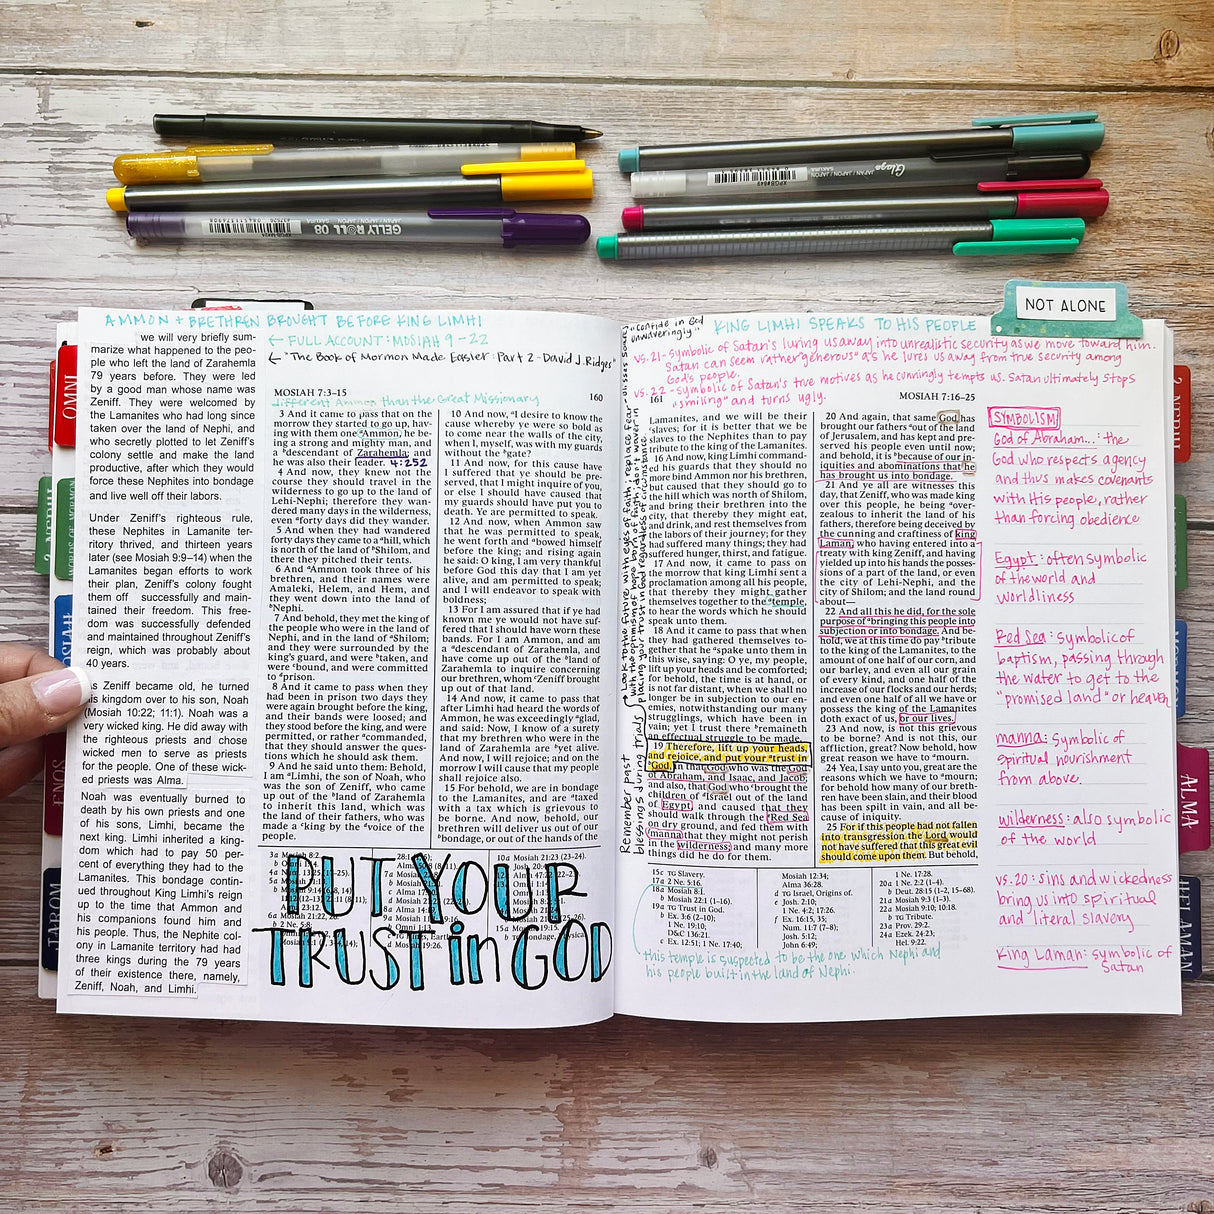 GELLY ROLL 08
SAKURA
JAPAN / JAPON
Glaze
JAPAN / JAPON
SAKURA
XPGB#849
NOT ALONE
OMNI
2 NEPHI
WORDS OF MORMON
MOSIAH
ENOS
JAROM
AMMON + BRETHREN BROUGHT BEFORE KING LIMHI
← FULL ACCOUNT: MOSIAH 9-22
← "The Book of Mormon Made Easier: Part 2 - David J. Ridges"
we will very briefly sum-
marize what happened to the peo-
ple who left the land of Zarahemla
79 years before. They were led
by a good man whose name was
Zeniff. They were welcomed by
the Lamanites who had long since
taken over the land of Nephi, and
who secretly plotted to let Zeniff's
colony settle and make the land
productive, after which they would
force these Nephites into bondage
and live well off their labors.
Under Zeniff's righteous rule,
these Nephites in Lamanite ter-
ritory thrived, and thirteen years
later (see Mosiah 9:9–14) when the
Lamanites began efforts to work
their plan, Zeniff's colony fought
them off successfully and main-
tained their freedom. This free-
dom was successfully defended
and maintained throughout Zeniff's
reign, which was probably about
40 years.
As Zeniff became old, he turned
his kingdom over to his son, Noah
(Mosiah 10:22; 11:1). Noah was a
very wicked king. He did away with
the righteous priests and chose
wicked men to serve as priests
for the people. One of these wick-
ed priests was Alma.
Noah was eventually burned to
death by his own priests and one
of his sons, Limhi, became the
next king. Limhi inherited a king-
dom which had to pay 50 per-
cent of everything they had to the
Lamanites. This bondage contin-
ued throughout King Limhi's reign
up to the time that Ammon and
his companions found him and
his people. Thus, the Nephite col-
ony in Lamanite territory had had
three kings during the 79 years
of their existence there, namely,
Zeniff, Noah, and Limhi.
MOSIAH 7:3–15
160
different Ammon than the Great Missionary
3 And it came to pass that on the
morrow they started to go up, hav-
ing with them one Ammon, he be-
ing a strong and mighty man, and
a descendant of Zarahemla; and
he was also their leader. 4:252
4 And now, they knew not the
course they should travel in the
wilderness to go up to the land of
Lehi-Nephi; therefore they wan-
dered many days in the wilderness,
even forty days did they wander.
5 And when they had wandered
forty days they came to a hill, which
is north of the land of Shilom, and
there they pitched their tents.
6 And Ammon took three of his
brethren, and their names were
Amaleki, Helem, and Hem, and
they went down into the land of
Nephi.
7 And behold, they met the king of
the people who were in the land of
Nephi, and in the land of Shilom;
and they were surrounded by the
king's guard, and were taken, and
were bound, and were committed
to prison.
8 And it came to pass when they
had been in prison two days they
were again brought before the king,
and their bands were loosed; and
they stood before the king, and were
permitted, or rather commanded,
that they should answer the ques-
tions which he should ask them.
9 And he said unto them: Behold,
I am Limhi, the son of Noah, who
was the son of Zeniff, who came
up out of the land of Zarahemla
to inherit this land, which was
the land of their fathers, who was
made a king by the voice of the
people.
10 And now, I desire to know the
cause whereby ye were so bold as
to come near the walls of the city,
when I, myself, was with my guards
without the gate?
11 And now, for this cause have
I suffered that ye should be pre-
served, that I might inquire of you,
or else I should have caused that
my guards should have put you to
death. Ye are permitted to speak.
12 And now, when Ammon saw
that he was permitted to speak,
he went forth and bowed himself
before the king; and rising again
he said: O king, I am very thankful
before God this day that I am yet
alive, and am permitted to speak;
and I will endeavor to speak with
boldness;
13 For I am assured that if ye had
known me ye would not have suf-
fered that I should have worn these
bands. For I am Ammon, and am
a descendant of Zarahemla, and
have come up out of the land of
Zarahemla to inquire concerning
our brethren, whom Zeniff brought
up out of that land.
14 And now, it came to pass that
after Limhi had heard the words of
Ammon, he was exceedingly glad,
and said: Now, I know of a surety
that my brethren who were in the
land of Zarahemla are yet alive.
And now, I will rejoice; and on the
morrow I will cause that my people
shall rejoice also.
15 For behold, we are in bondage
to the Lamanites, and are taxed
with a tax which is grievous to
be borne. And now, behold, our
brethren will deliver us out of our
bondage, or out of the hands of the
PUT YOUR
TRUST in GOD
"confide in God
unwaveringly"
Look to the future with eyes of faith; replace fear
Remember past
blessings during trials
placing your trust in God regardless of circumstance.
KING LIMHI SPEAKS TO HIS PEOPLE
vs. 21 - symbolic of Satan's luring us away into unrealistic security as we move toward him.
Satan can seem "rather generous" as he lures us away from true security among
God's people.
vs. 22 - symbolic of Satan's true motives as he cunningly tempts us. Satan ultimately stops
"smiling" and turns ugly.
161
MOSIAH 7:16–25
Lamanites, and we will be their
slaves; for it is better that we be
slaves to the Nephites than to pay
tribute to the king of the Lamanites.
16 And now, king Limhi command-
ed his guards that they should no
more bind Ammon nor his brethren,
but caused that they should go to
the hill which was north of Shilom,
and bring their brethren into the
city, that thereby they might eat,
and drink, and rest themselves from
the labors of their journey; for they
had suffered many things; they had
suffered hunger, thirst, and fatigue.
17 And now, it came to pass on
the morrow that king Limhi sent a
proclamation among all his people,
that thereby they might gather
themselves together to the temple,
to hear the words which he should
speak unto them.
18 And it came to pass that when
they had gathered themselves to-
gether that he spake unto them in
this wise, saying: O ye, my people,
lift up your heads and be comforted;
for behold, the time is at hand, or
is not far distant, when we shall no
longer be in subjection to our en-
emies, notwithstanding our many
strugglings, which have been in
vain; yet I trust there remaineth
an effectual struggle to be made.
19 Therefore, lift up your heads,
and rejoice, and put your trust in
God, in that God who was the God
of Abraham, and Isaac, and Jacob;
and also, that God who brought the
children of Israel out of the land
of Egypt, and caused that they
should walk through the Red Sea
on dry ground, and fed them with
manna that they might not perish
in the wilderness; and many more
things did he do for them.
20 And again, that same God has
brought our fathers out of the land
of Jerusalem, and has kept and pre-
served his people even until now;
and behold, it is because of our in-
iquities and abominations that he
has brought us into bondage.
21 And ye all are witnesses this
day, that Zeniff, who was made king
over this people, he being over-
zealous to inherit the land of his
fathers, therefore being deceived by
the cunning and craftiness of king
Laman, who having entered into a
treaty with king Zeniff, and having
yielded up into his hands the posses-
sions of a part of the land, or even
the city of Lehi-Nephi, and the
city of Shilom; and the land round
about—
22 And all this he did, for the sole
purpose of bringing this people into
subjection or into bondage. And be-
hold, we at this time do pay tribute
to the king of the Lamanites, to the
amount of one half of our corn, and
our barley, and even all our grain
of every kind, and one half of the
increase of our flocks and our herds;
and even one half of all we have or
possess the king of the Lamanites
doth exact of us, or our lives.
23 And now, is not this grievous
to be borne? And is not this, our
affliction, great? Now behold, how
great reason we have to mourn.
24 Yea, I say unto you, great are the
reasons which we have to mourn;
for behold how many of our breth-
ren have been slain, and their blood
has been spilt in vain, and all be-
cause of iniquity.
25 For if this people had not fallen
into transgression the Lord would
not have suffered that this great evil
should come upon them. But behold,
15c TG Slavery.
17a 2 Ne. 5:16.
18a Mosiah 8:1.
b Mosiah 22:1 (1–16).
19a TG Trust in God.
b Ex. 3:6 (2–10);
1 Ne. 19:10;
D&C 136:21.
c Ex. 12:51; 1 Ne. 17:40;
Mosiah 12:34;
Alma 36:28.
d TG Israel, Origins of.
e Josh. 2:10;
1 Ne. 4:2; 17:26.
f Ex. 16:15, 35;
Num. 11:7 (7–8);
Josh. 5:12;
John 6:49;
1 Ne. 17:28.
20a 1 Ne. 2:2 (1–4).
b Deut. 28:15 (1–2, 15–68).
21a Mosiah 9:3 (1–3).
22a Mosiah 9:10; 10:18.
b TG Tribute.
23a Prov. 29:2.
24a Ezek. 24:23;
Hel. 9:22.
this temple is suspected to be the one which Nephi and
his people built in the land of Nephi.
SYMBOLISM
God of Abraham...: the
God who respects agency
and thus makes covenants
with His people, rather
than forcing obedience
Egypt: often symbolic
of the world and
worldliness
Red Sea: symbolic of
baptism, passing through
the water to get to the
"promised land" or heaven
manna: symbolic of
spiritual nourishment
from above.
wilderness: also symbolic
of the world
vs. 20: sins and wickedness
bring us into spiritual
and literal slavery
King Laman: symbolic of
Satan
ALMA
HELAMAN